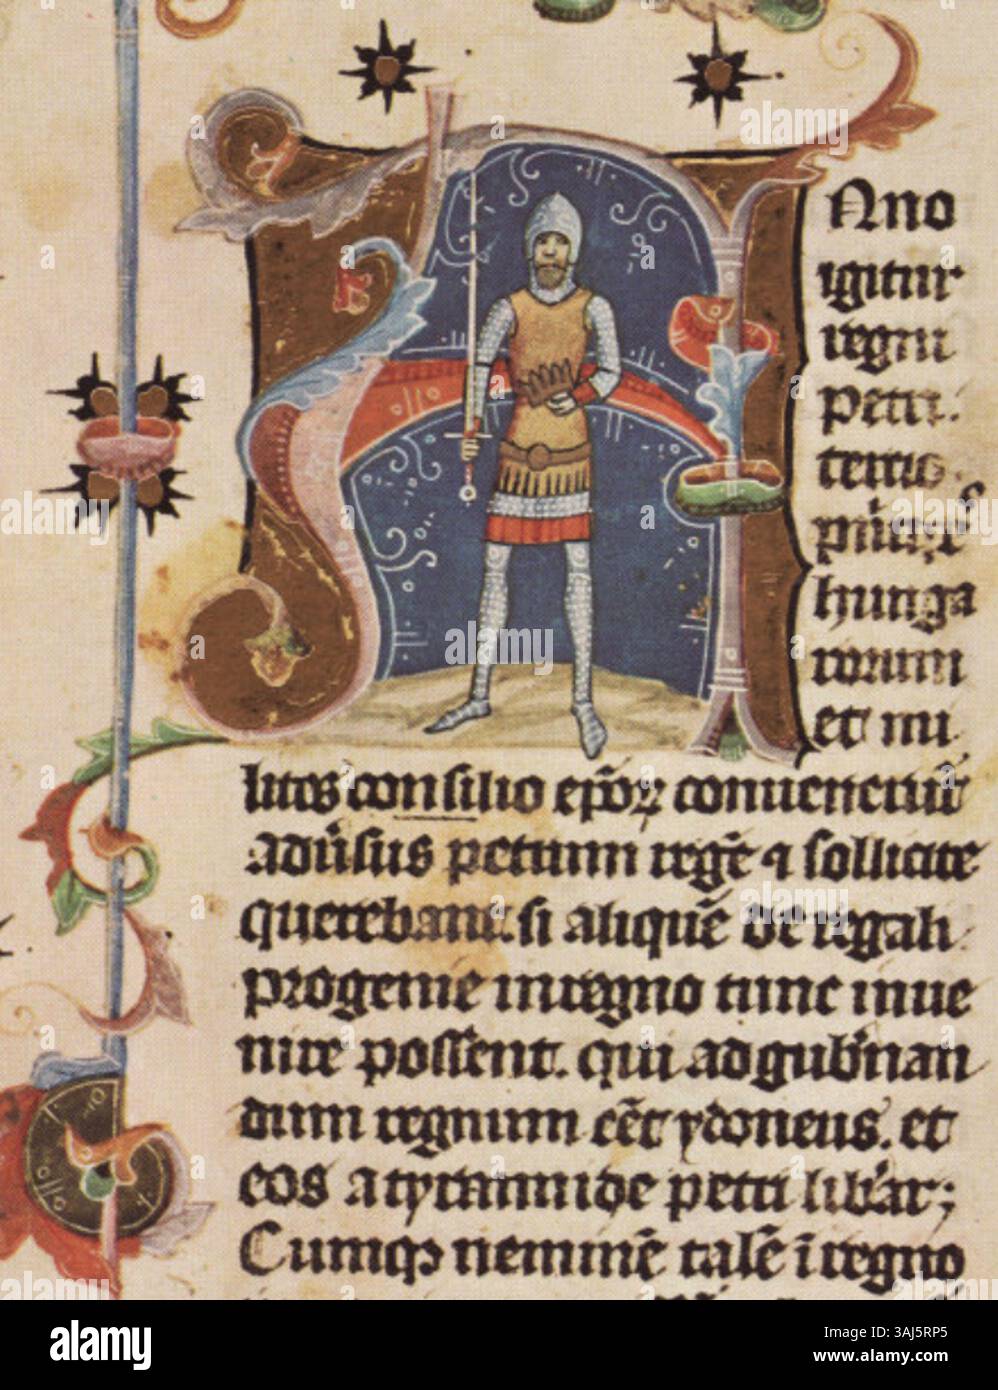 Anno
igitur
regni
petri
tertio.
pͥncipeˢ
hunga
rorum
et mi
lites consilio ep̄oꝝ conuenerūt
adūsus petrum regē ⁊ sollicite
querebant. si aliquē de regali
progenie in regno tunc inue
nire possent. qui ad gub̄nan
dum regnum eēt ydoneus. et
eos a tyrannide petri lib̄aret;
Cumqꝫ neminē talē ī regno
alamy
Image ID: 3AJ5RP5
www.alamy.com